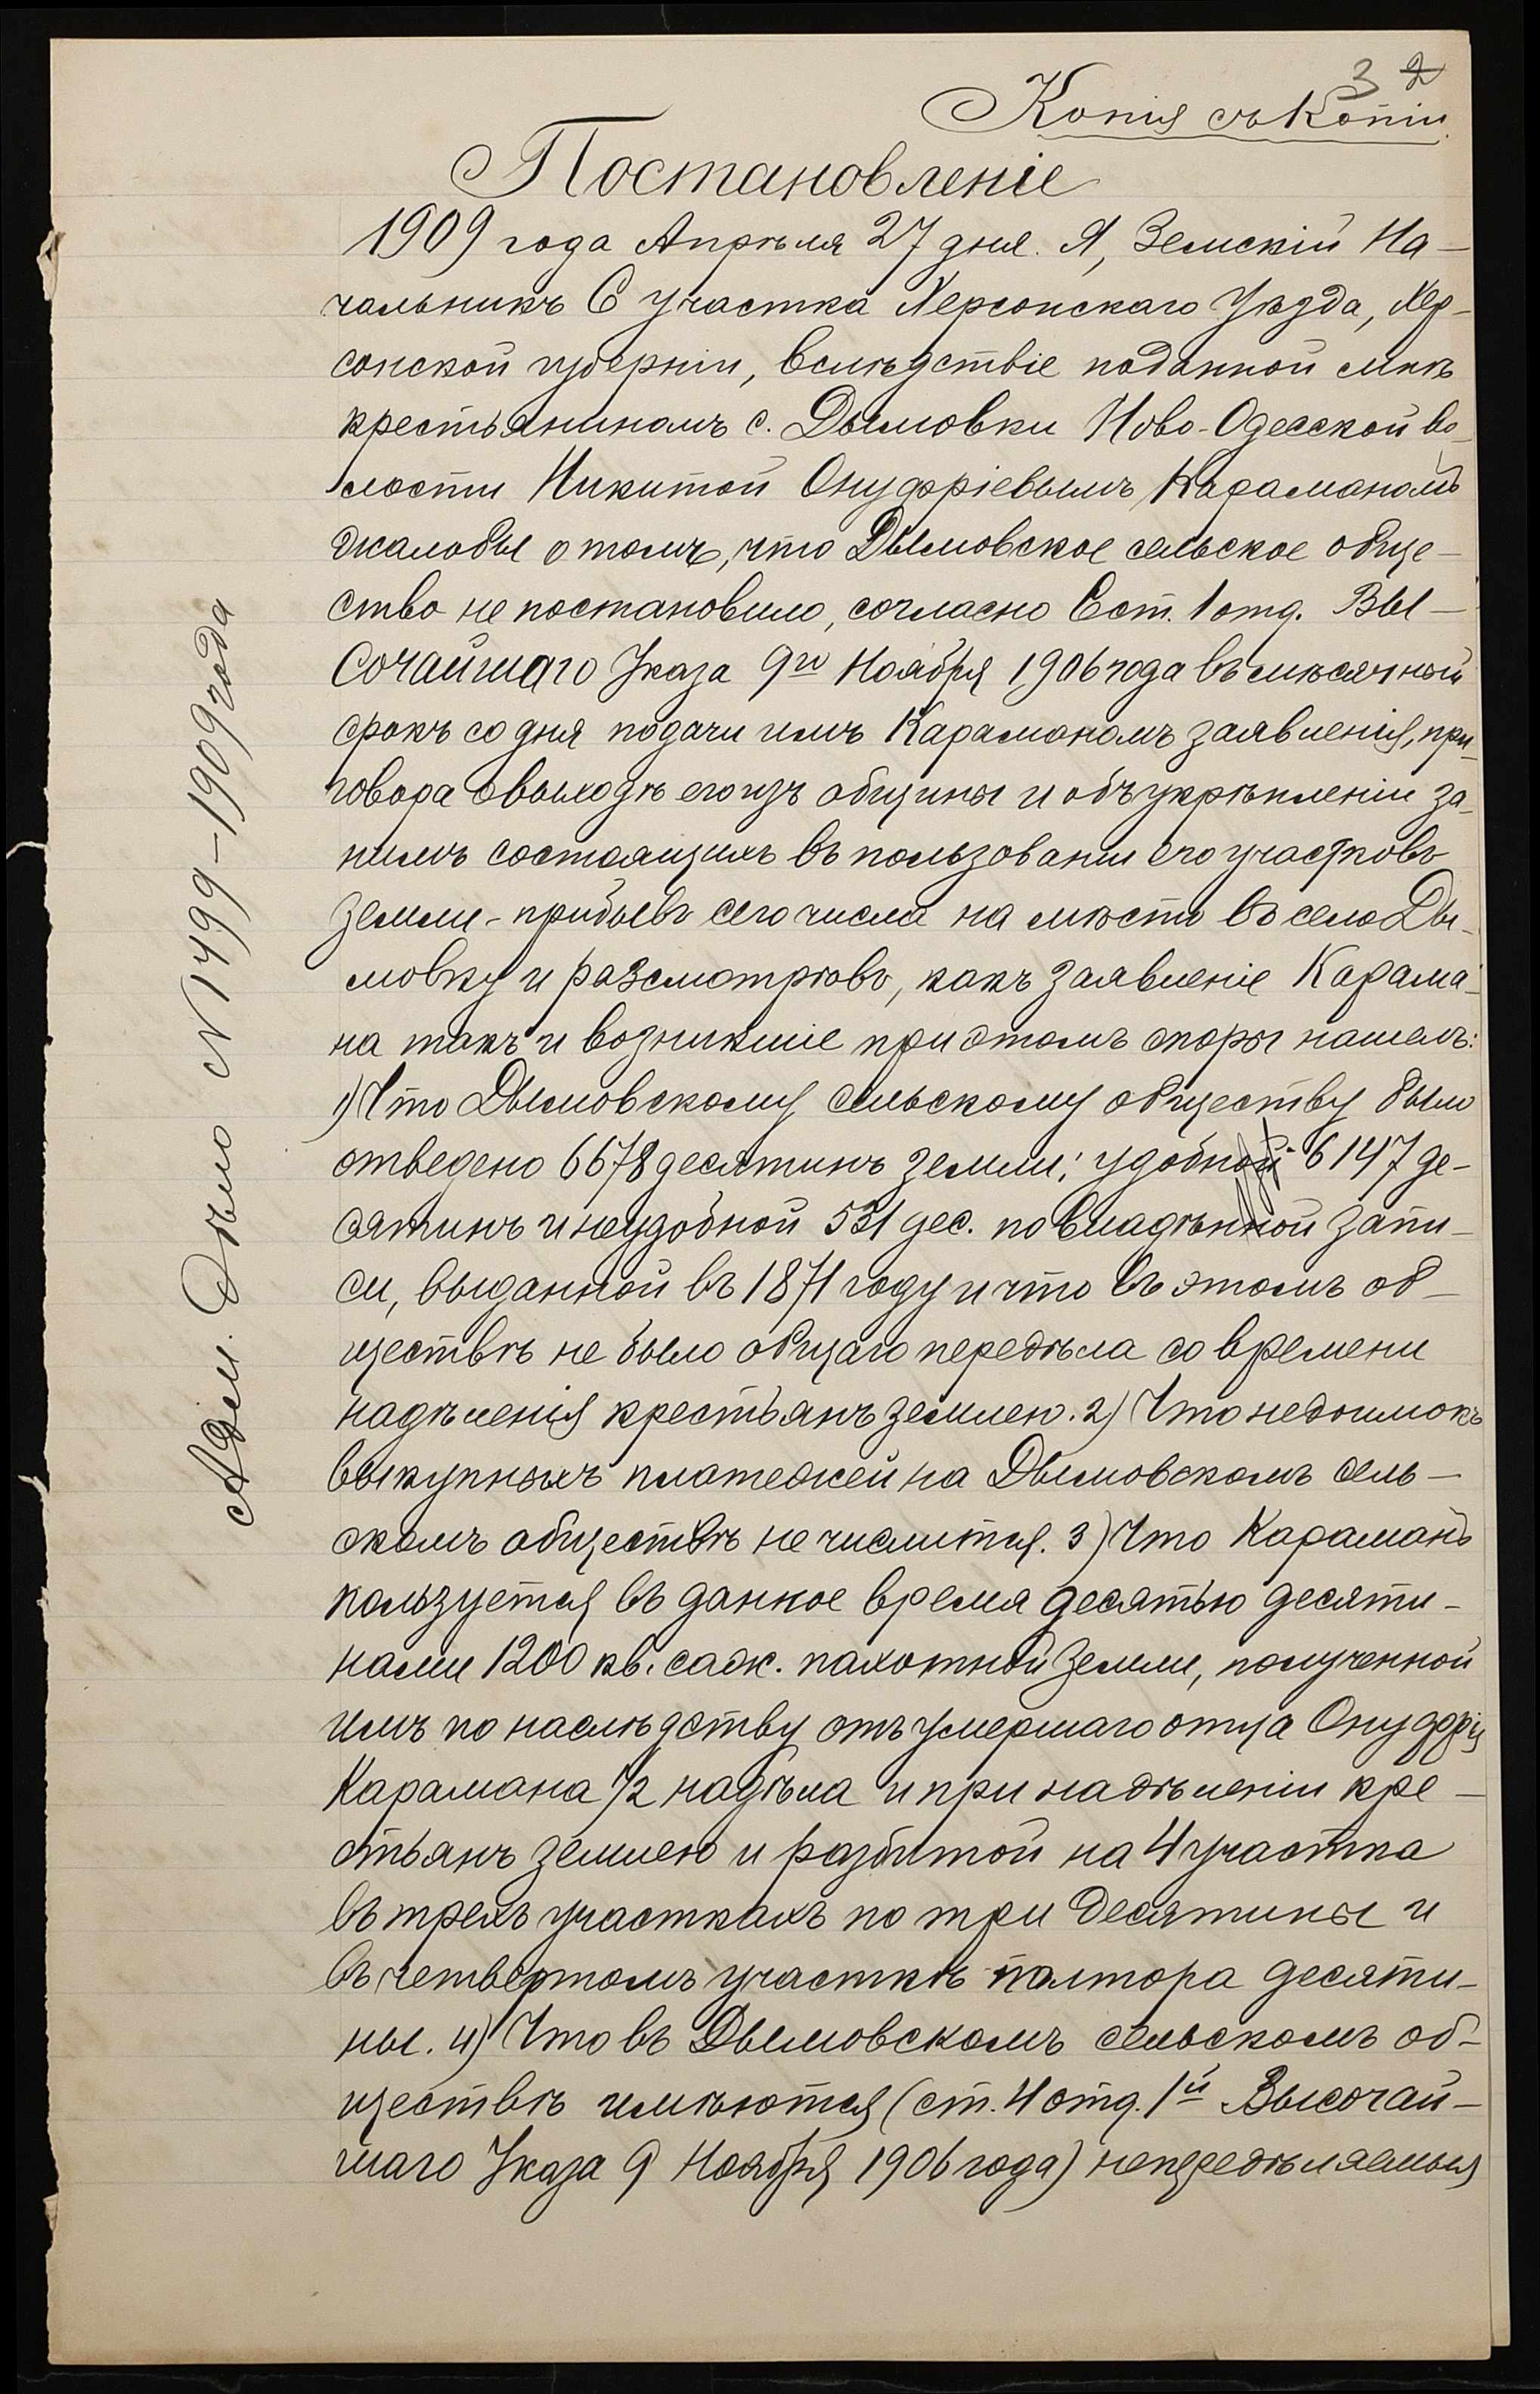 3 2
Копія съ копіи
Постановленіе
1909 года Апрѣля 27 дня. Я, Земскій На-
чальникъ 6 участка Херсонскаго Уѣзда, Хер-
сонской губерніи, вслѣдствіе поданной мнѣ
крестьяниномъ с. Дымовки Ново-Одесской во-
лости Никитой Онуфріевымъ Караманомъ
жалобы о томъ, что Дымовское сельское обще-
ство не постановило, согласно 6 ст. 1 отд. ВЫ-
СОЧАЙШАГО Указа 9го Ноября 1906 года въ мѣсячный
срокъ со дня подачи имъ Караманомъ заявленія, при-
говора о выходѣ его изъ общины и объ укрѣпленіи за
нимъ состоящихъ въ пользованіи его участковъ
земли - прибывъ сего числа на мѣсто въ село Ды-
мовку и разсмотрѣвъ, какъ заявленіе Карама-
на такъ и возникшіе при этомъ споры нашелъ:
1) Что Дымовскому сельскому обществу было
отведено 6678 десятинъ земли; удобной 6147 де-
сятинъ и неудобной 531 дес. по владѣнной запи-
си, выданной въ 1871 году и что въ этомъ об-
ществѣ не было общаго передѣла со времени
надѣленія крестьянъ землею. 2) Что недоимокъ
выкупныхъ платежей на Дымовскомъ сель-
скомъ обществѣ не числится. 3) Что Караманъ
пользуется въ данное время десятью десяти-
нами 1200 кв. саж. пахотной земли, полученной
имъ по наслѣдству отъ умершаго отца Онуфрія
Карамана 1/2 надѣла и при надѣленіи кре-
стьянъ землею и разбитой на 4 участка
въ трехъ участкахъ по три десятины и
въ четвертомъ участкѣ полтора десяти-
ны. 4) Что въ Дымовскомъ сельскомъ об-
ществѣ имѣются (ст. 4 отд. 1й Высочай-
шаго Указа 9 Ноября 1906 года) непередѣляемыя
Адм. Дѣло N 1499-1909 года